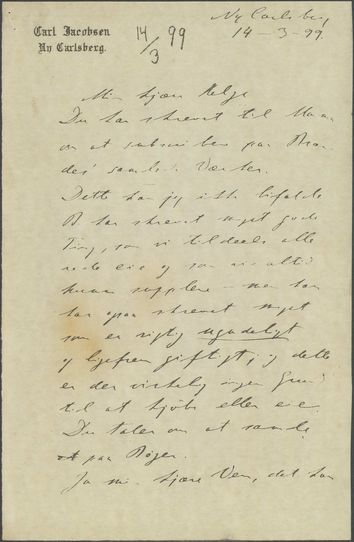 Carl Jacobsen
Ny Carlsberg.
14/3 99
Ny Carlsberg,
14-3-99.
Min kjære Helge
Du har skrevet til Mama
om at subscribere paa Bran
des' samlede Værker.
Dette kan jeg ikke bifalde
B. har skrevet noget gode
Ting, som vi tildeels alle
rede eie og som vi altid
kunne supplere - men han
har ogsaa skrevet noget
som er rigtig ugudeligt
og ligefrem giftigt, og dette
er der virkelig ingen Grund
til at kjøbe eller eie.
Du taler om at samle
paa Bøger.
Ja min kjære Ven, det kan